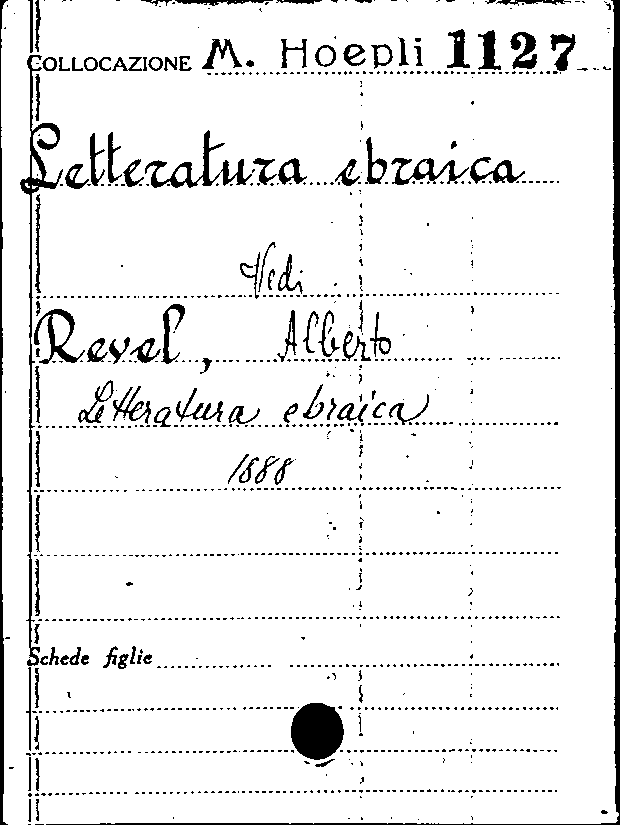 COLLOCAZIONE M. Hoepli 1127
Letteratura ebraica
Vedi
Revel, Alberto
Letteratura ebraica
1888
Schede figlie